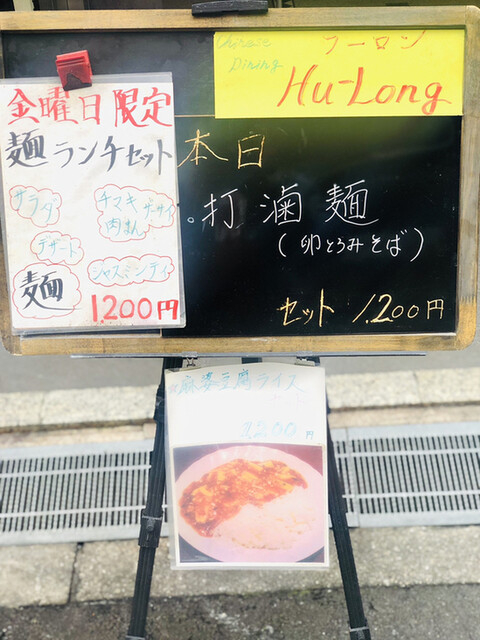 Chinese
Dining
フーロン
Hu-Long
金曜日限定
麺ランチセット
サラダ
チマキ
肉まん
ザーサイ
デザート
ジャスミンティ
麺
1.200円
本日
。打滷麺
(卵とろみそば)
セット 1.200円
麻婆豆腐ライス
1.200円